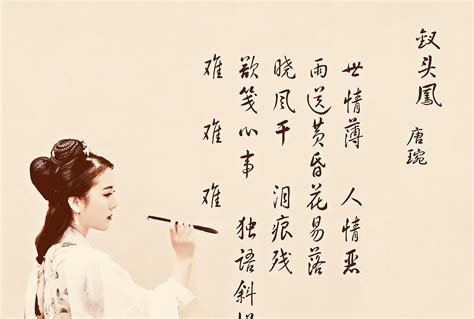 钗头鳳
唐琬
世情薄 人情恶
雨送黄昏花易落
晓风干 泪痕残
欲笺心事 独语斜
难 难 难